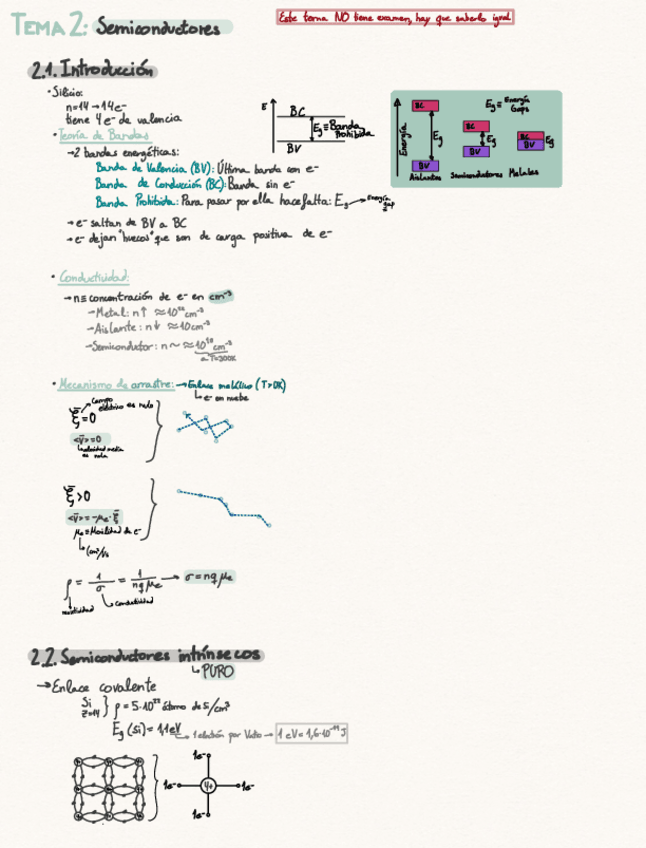 TEMA 2: Semiconductores
Este tema NO tiene examen, hay que saberlo igual
2.1. Introducción
· Silicio:
n=14→14e⁻
tiene 4e⁻ de valencia
· Teoría de Bandas
→2 bandas energéticas:
Banda de Valencia (BV): Última banda con e⁻
Banda de Conducción (BC): Banda sin e⁻
Banda Prohibida: Para pasar por ella hace falta: Eg → Energía gap
→ e⁻ saltan de BV a BC
→ e⁻ dejan "huecos" que son de carga positiva de e⁻
E
BC
Eg ≡ Banda Prohibida
BV
Energía
BC
Eg
BV
Aislantes
BC
Eg
BV
Semiconductores
Eg ≡ Energía Gaps
BC
BV
Eg
Metales
· Conductividad:
→ n ≡ concentración de e⁻ en cm⁻³
→Metal: n↑
→Aislante: n↓ ≈10cm⁻³
→Semiconductor: n~ ≈10¹⁰ cm⁻³
a T=300K
· Mecanismo de arrastre: → Enlace metálico (T>0K)
↳ e⁻ en nube
ξ=0 → Campo eléctrico es nulo
<v>=0
↳ velocidad media es nula
ξ>0
<v>=-μe·ξ
μe ≡ Movilidad de e⁻
↳ (cm²/Vs
ρ = 1/σ = 1/nqμe → σ = nqμe
resistividad
↳ conductividad
2.2. Semiconductores intrínsecos
↳ PURO
→ Enlace covalente
Si
Z=14 } ρ = 5·10²² átomo de Si/cm³
Eg (Si) = 1,1eV
↳ 1 electrón por Voltio → 1 eV = 1,6·10⁻¹⁹ J
1e⁻
1e⁻ 4+ 1e⁻
1e⁻